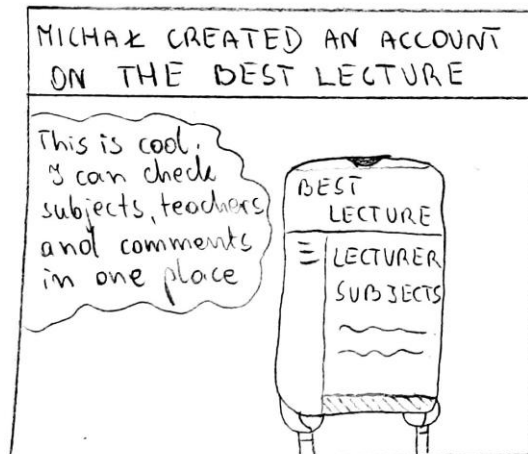 MICHAŁ CREATED AN ACCOUNT
ON THE BEST LECTURE
This is cool.
I can check
subjects, teachers
and comments
in one place
BEST
LECTURE
LECTURER
SUBJECTS